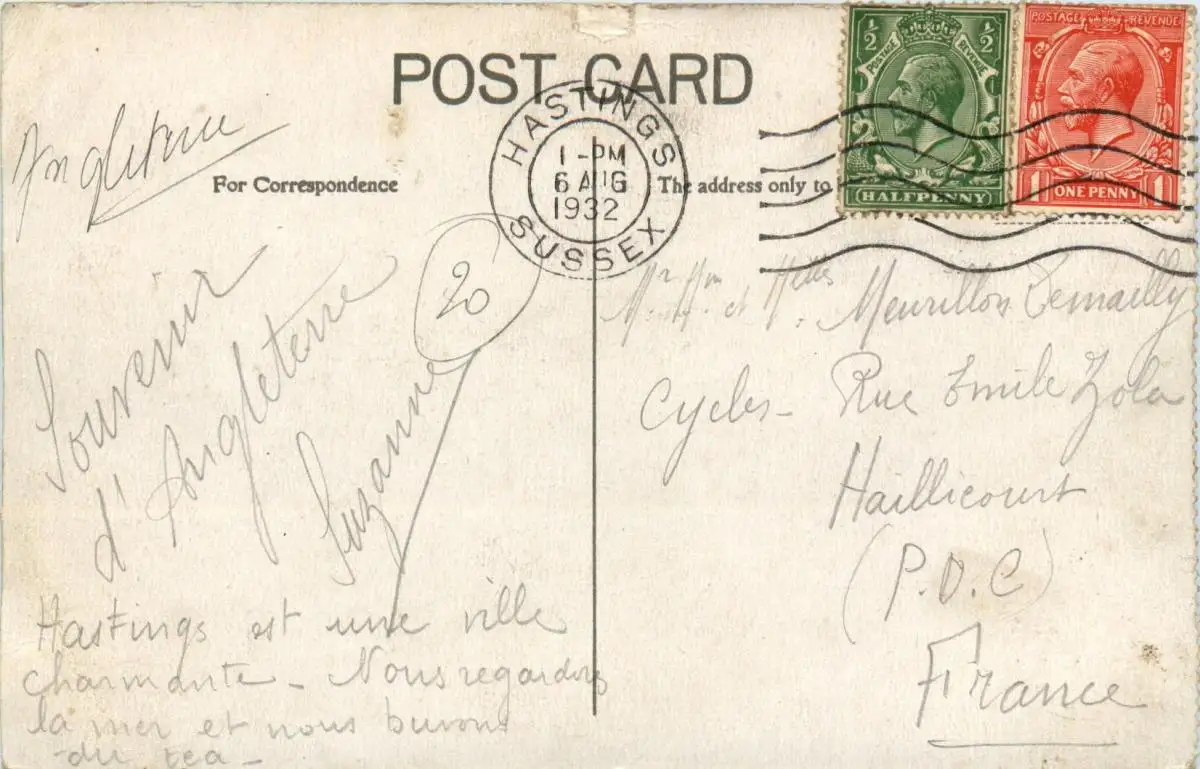 POST CARD
Angleterre
For Correspondence
The address only to
HASTINGS
1-PM
6 AUG
1932
SUSSEX
1/2 1/2
POSTAGE REVENUE
HALFPENNY
POSTAGE REVENUE
1 ONE PENNY 1
20
Souvenir
d'Angleterre
Suzanne
Hastings est une ville
charmante - Nous regardons
la mer et nous buvons
du tea -
Mr. Mm. et Melles Meurillon Demailly
Cycles - Rue Emile Zola
Haillicourt
(P.D.C)
France